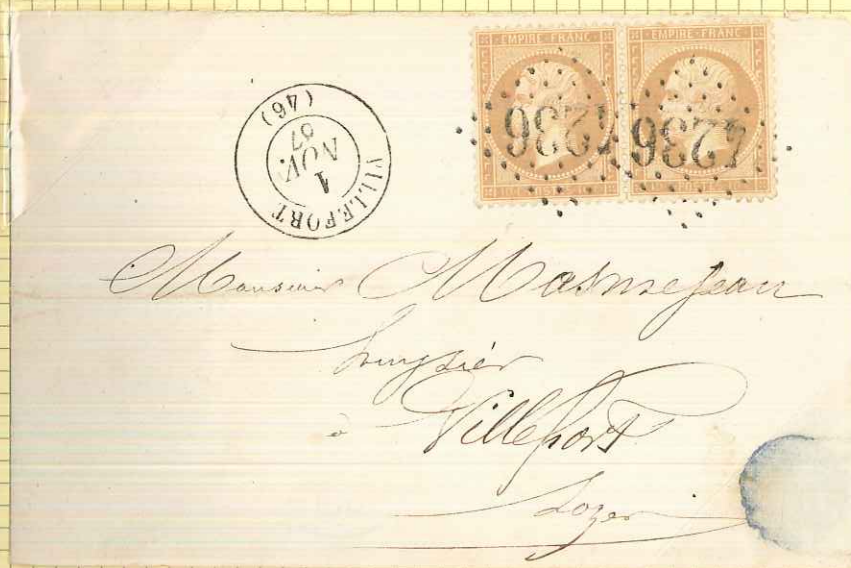 EMPIRE FRANC EMPIRE FRANC
4236 4236
VILLEFORT
1
NOV.
67
(46)
Monsieur Masmejean
huissier
à Villefort
Lozère